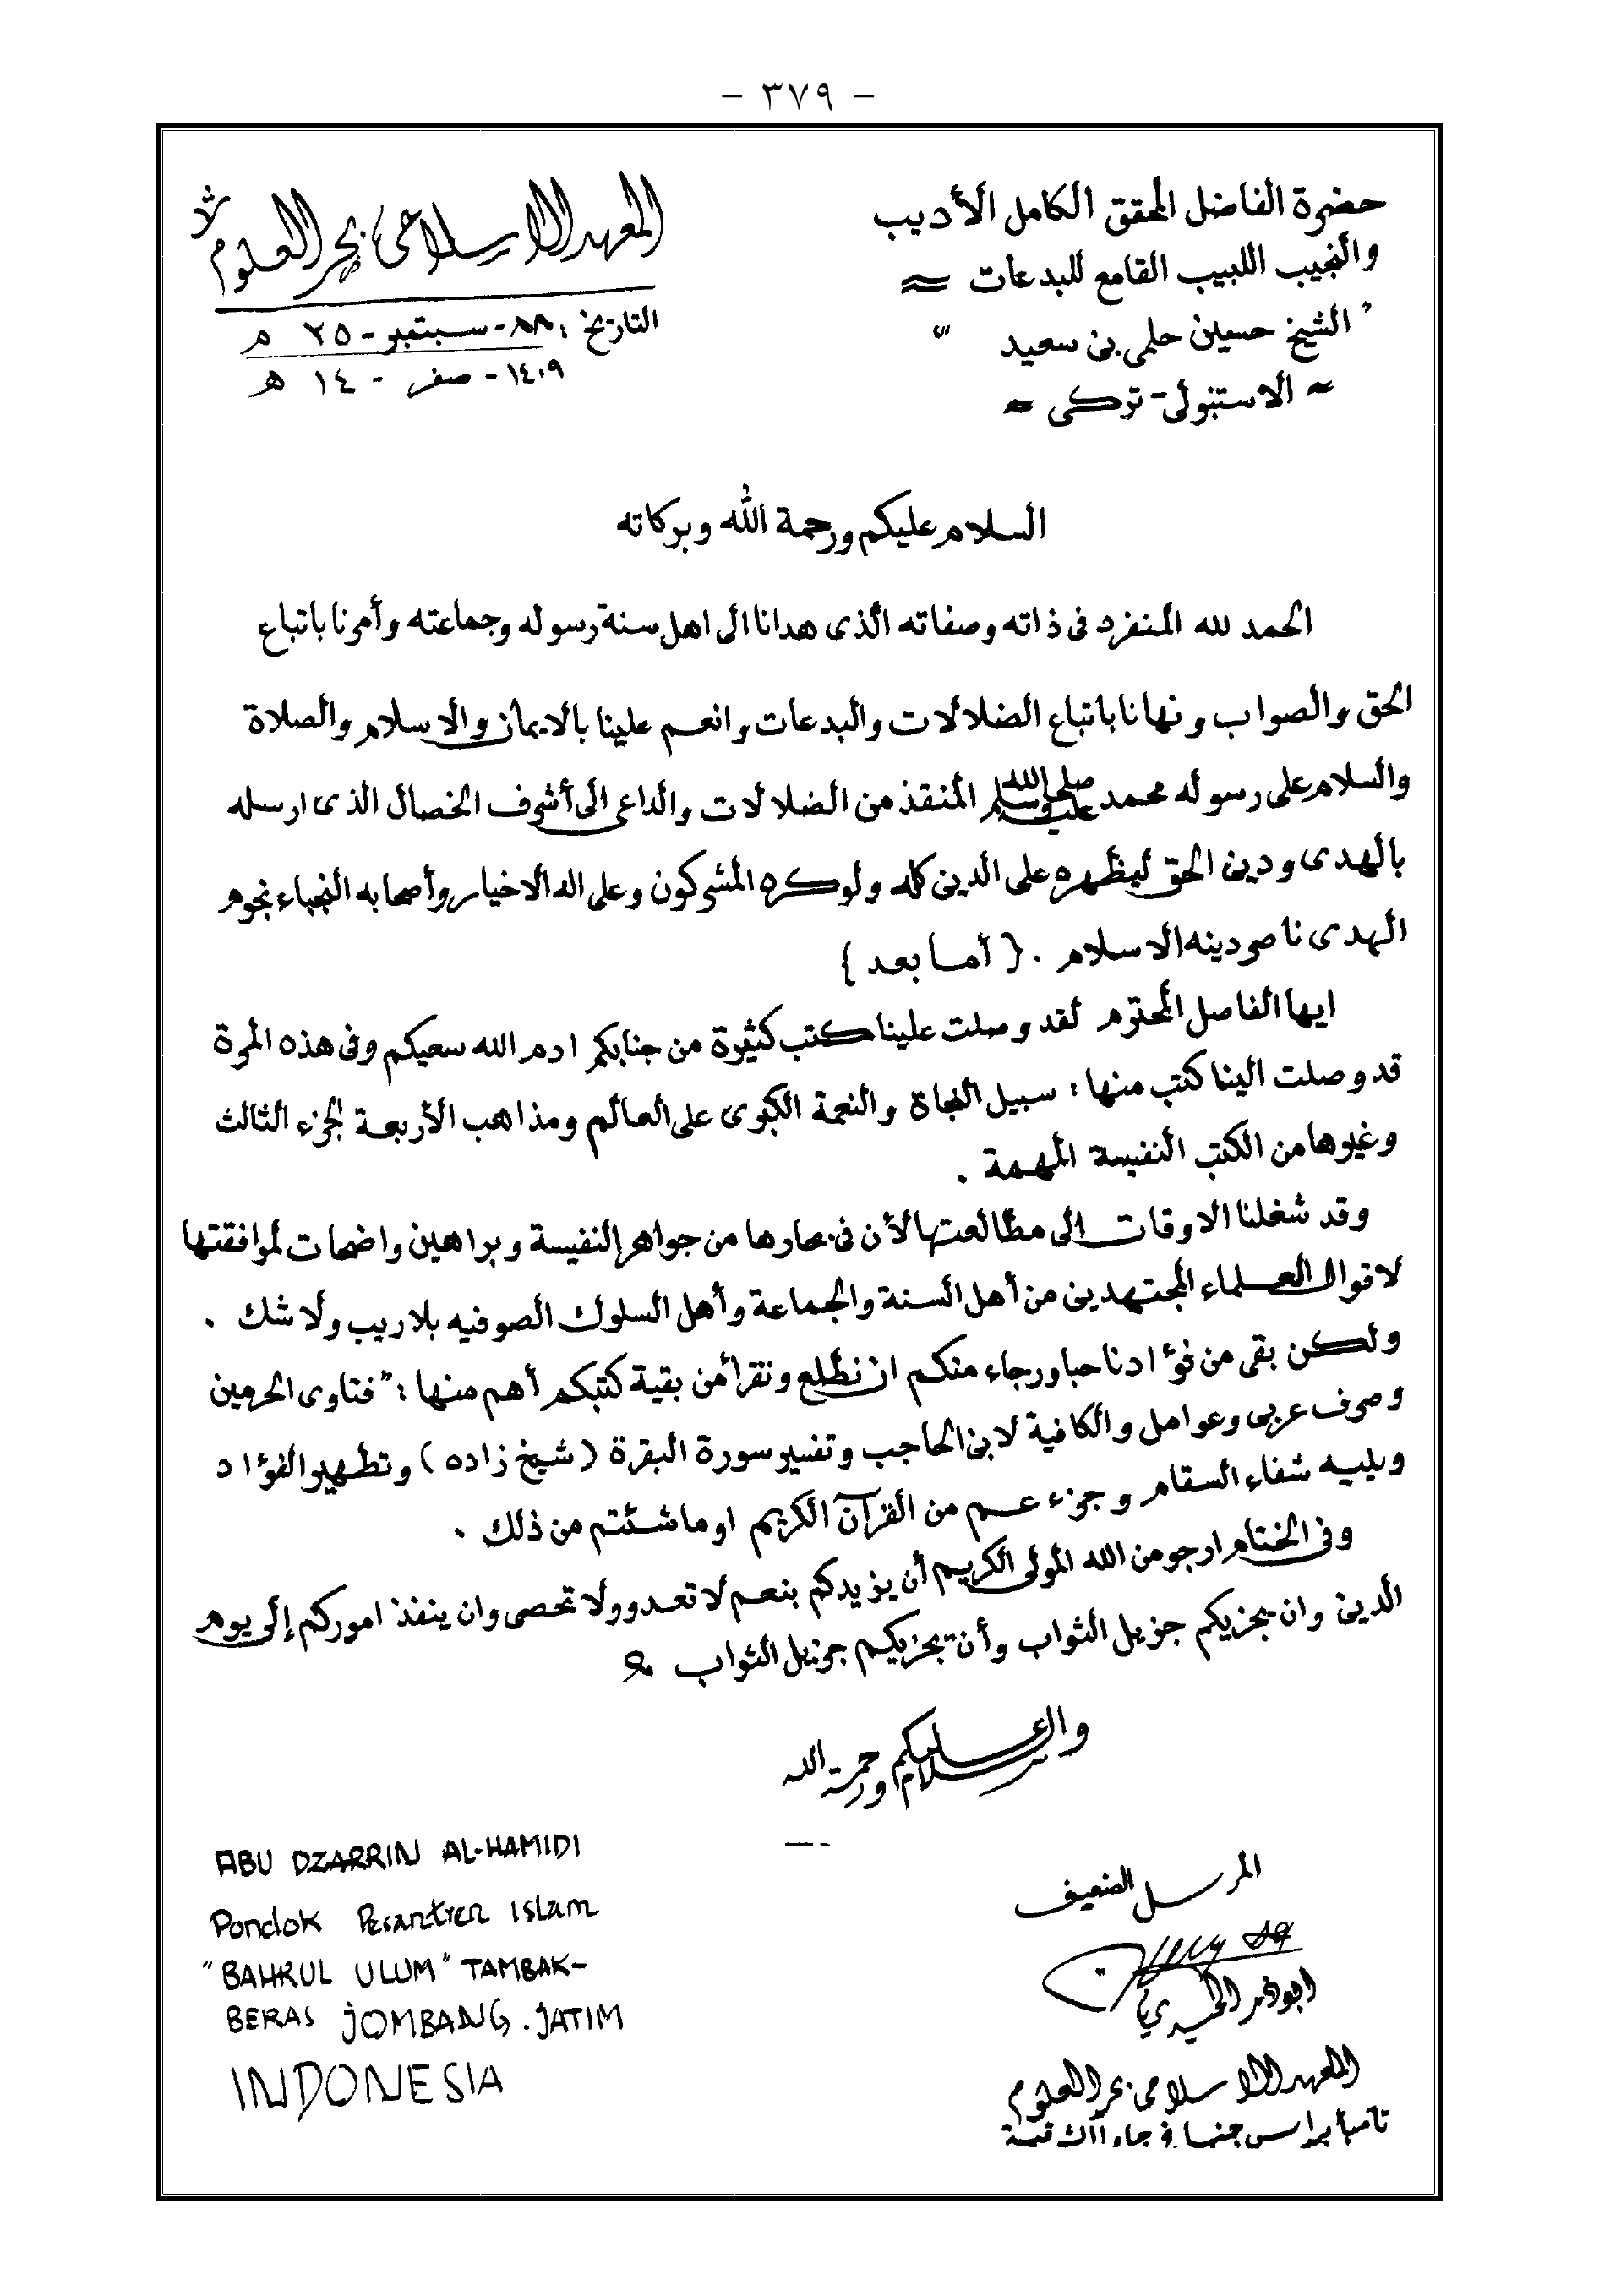 - ٣٧٩ -
حضرة الفاضل المحقق الكامل الأديب
والنجيب اللبيب القامع للبدعات
" الشيخ حسين حلمى بن سعيد "
الاستنبولى - تركى
المعهد الاسلامى بحر العلوم
التاريخ : ٨٨ - سبتمبر - ٢٥ م
١٤٠٩ - صفر - ١٤ هـ
السلام عليكم ورحمة الله وبركاته
الحمد لله المنفرد فى ذاته وصفاته الذى هدانا الى اهل سنة رسوله وجماعته وأمرنا باتباع
الحق والصواب ونهانا باتباع الضلالات والبدعات وانعم علينا بالايمان والاسلام والصلاة
والسلام على رسوله محمد صلى الله عليه وسلم المنقذ من الضلالات والداعى الى أشرف الخصال الذى ارسله
بالهدى ودين الحق ليظهره على الدين كله ولو كره المشركون وعلى اله الاخيار وأصحابه النجباء نجوم
الهدى ناصر دينه الاسلام . { أما بعد }
ايها الفاصل المحترم لقد وصلت علينا كتب كثيرة من جنابكم ادم الله سعيكم وفى هذه المرة
قد وصلت الينا كتب منها : سبيل النجاة والنعمة الكبرى على العالم ومذاهب الأربعة الجزء الثالث
وغيرها من الكتب النفيسة المهمة .
وقد شغلنا الاوقات الى مطالعتها لأن فى بحارها من جواهر النفيسة وبراهين واضحات لموافقتها
لاقوال العلماء المجتهدين من أهل السنة والجماعة وأهل السلوك الصوفيه بلا ريب ولا شك .
ولكن بقى من فؤادنا حبا ورجاء منكم ان نطلع ونقرأ من بقية كتبكم أهم منها : " فتاوى الحرمين
وصرف عربى وعوامل والكافية لابن الحاجب وتفسير سورة البقرة ( شيخ زاده ) وتطهير الفؤاد
ويليه شفاء السقام وجزء عم من القرآن الكريم او ما شئتم من ذلك .
وفى الختام ارجو من الله المولى الكريم أن يزيدكم بنعم لا تعد وولا تحصى وان ينفذ اموركم إلى يوم
الدين وان يجزيكم جزيل الثواب وأن يجزيكم جزيل الثواب
والسلام عليكم ورحمة الله
المرسل الضعيف
ابو ذر الحميدي
المعهد الاسلامى بحر العلوم
ABU DZARRIN AL-HAMIDI
Pondok Pesantren Islam
"BAHRUL ULUM" TAMBAK-
BERAS JOMBANG. JATIM
INDONESIA